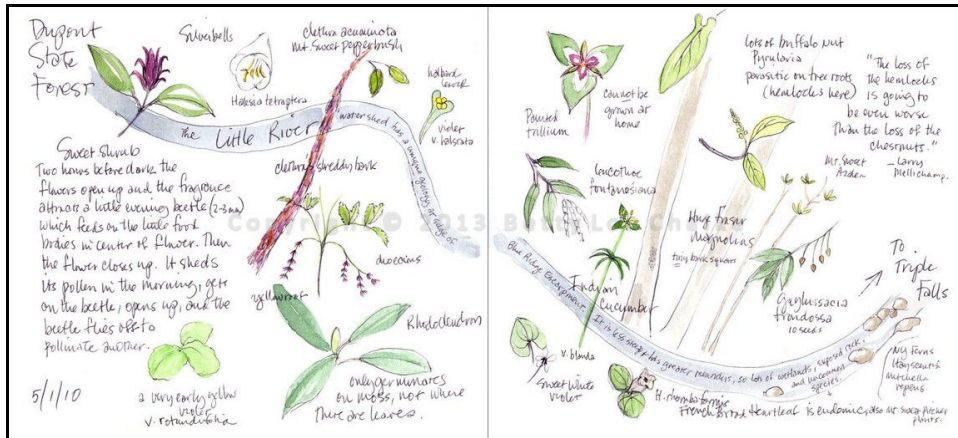 Dupont
State
Forest
Silverbells
Halesia tetraptera
clethra acuminata
Mt. Sweet pepperbush
halberd
leaved
violet
v. hastata
The Little River
watershed has a unique geology at edge of
clethra's shreddy bark
Sweet shrub
Two hours before dark the
flowers open up and the fragrance
attracts a little evening beetle (2-3mm)
which feeds on the little food
bodies in center of flower. Then
the flower closes up. It sheds
its pollen in the morning, gets
on the beetle, opens up, and the
beetle flies off to
pollinate another.
yellowroot
dioecious
Rhododendron
only germinates
on moss, not where
there are leaves.
a very early yellow
violet
v. rotundifolia
5/1/10
Copyright © 2013
Painted
trillium
cannot be
grown at
home
lots of buffalo nut
Pyrularia
parasitic on tree roots
(hemlocks here)
"The loss of
the hemlocks
is going to
be even worse
than the loss of the
chestnuts."
—Larry
Mellichamp.
Mt. Sweet
Leucothoe
fontanesiana
Huge Fraser
magnolias
tiny bark squares
Indian
Cucumber
Gaylussacia
frondosa
10 seeds
To
Triple
Falls
Blue Ridge Escarpment. It is less steep & has greater meanders, so lots of wetlands, exposed rock,
and uncommon
species.
V. blanda
Sweet White
violet
H. rhombiformis
French Broad Heartleaf is endemic, also Mt. Sweet Pitcher
plants.
NY Ferns
Hayscented
mitchella
repens